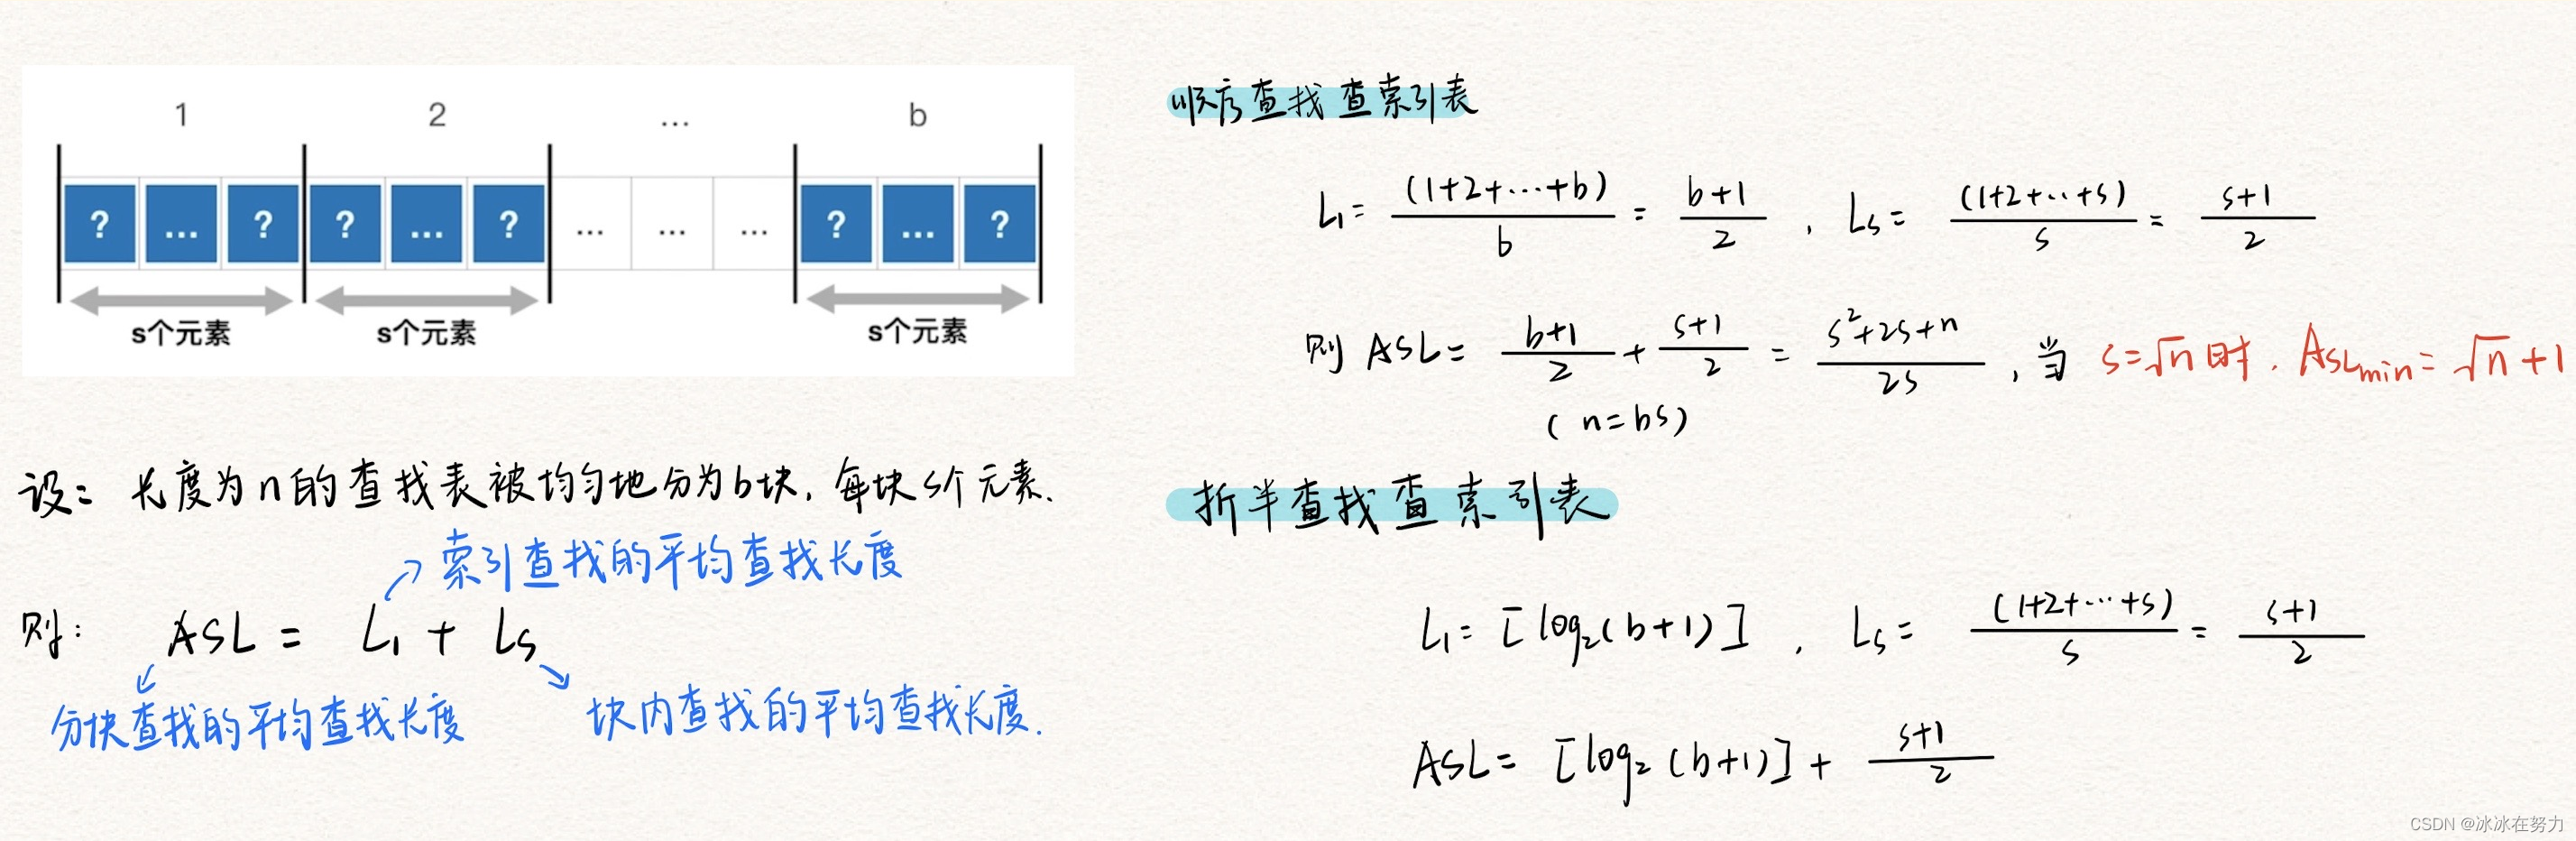 1 2 ... b
? ... ? ? ... ? ... ... ... ? ... ?
s个元素 s个元素 s个元素
设: 长度为n的查找表被均匀地分为b块,每块s个元素.
索引查找的平均查找长度
则: ASL = L₁ + Ls
分块查找的平均查找长度 块内查找的平均查找长度.
顺序查找查索引表
L₁= (1+2+…+b)/b = (b+1)/2 , Ls= (1+2+…+s)/s = (s+1)/2
则 ASL= (b+1)/2 + (s+1)/2 = (s²+2s+n)/2s , 当 s=√n时. ASLmin= √n+1
(n=bs)
折半查找查索引表
L₁= [log₂(b+1)] , Ls= (1+2+…+s)/s = (s+1)/2
ASL= [log₂(b+1)] + (s+1)/2
CSDN @冰冰在努力